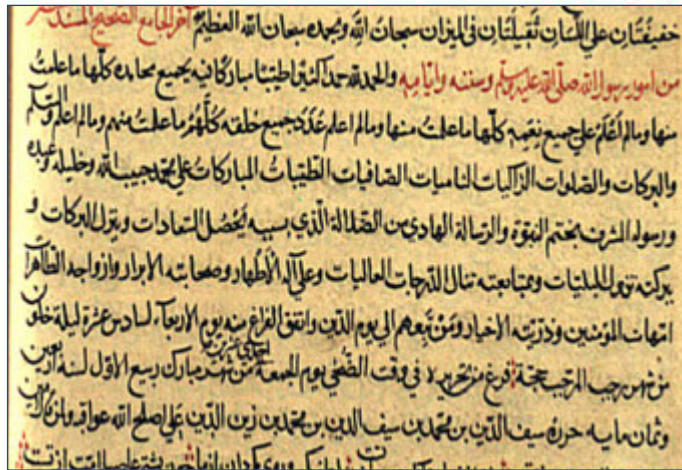 خفيفتان على اللسان ثقيلتان فى الميزان سبحان الله وبحمده سبحان الله العظيم آخر الجامع الصحيح المسند
من امور رسول الله صلى الله عليه وسلم وسننه وايامه والحمد لله حمدا كثيرا طيبا مباركا فيه بجميع محامده كلها ما علمت
منها وما لم اعلم على جميع نعمه كلها ما علمت منها وما لم اعلم عدد جميع خلقه كلهم ما علمت منهم وما لم اعلم والسلم
والبركات والصلوات الزاكيات الناميات الصافيات الطيبات المباركات على محمد حبيب الله وخليله وعبده
ورسوله المشرف بختم النبوة والرسالة الهادى من الضلالة الذى بسببه يحصل السعادات وينزل البركات و
بركته تزول البليات وبمتابعته تنال الدرجات العاليات وعلى آله الاطهار وصحابته الابرار وازواجه الطاهرات
امهات المؤمنين وذريته الاخيار ومن تبعهم الى يوم الدين واتفق الفراغ منه يوم الاربعاء لسادس عشرة ليلة خلون
من شهر رجب المرجب فرغ من تحريره فى وقت الضحى يوم الجمعة احدى عشرين من شهر مبارك ربيع الاول لسنة اربعين
وثمان مايه حرره سيف الدين بن محمد بن سيف الدين بن محمد بن زين الدين على اصلح الله عواقبه